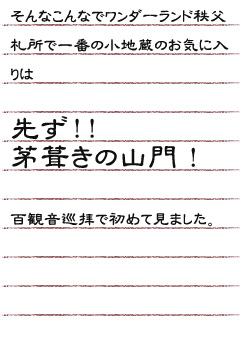 そんなこんなでワンダーランド秩父
札所で一番の小地蔵のお気に入
りは
先ず!!
茅葺きの山門!
百観音巡拝で初めて見ました。